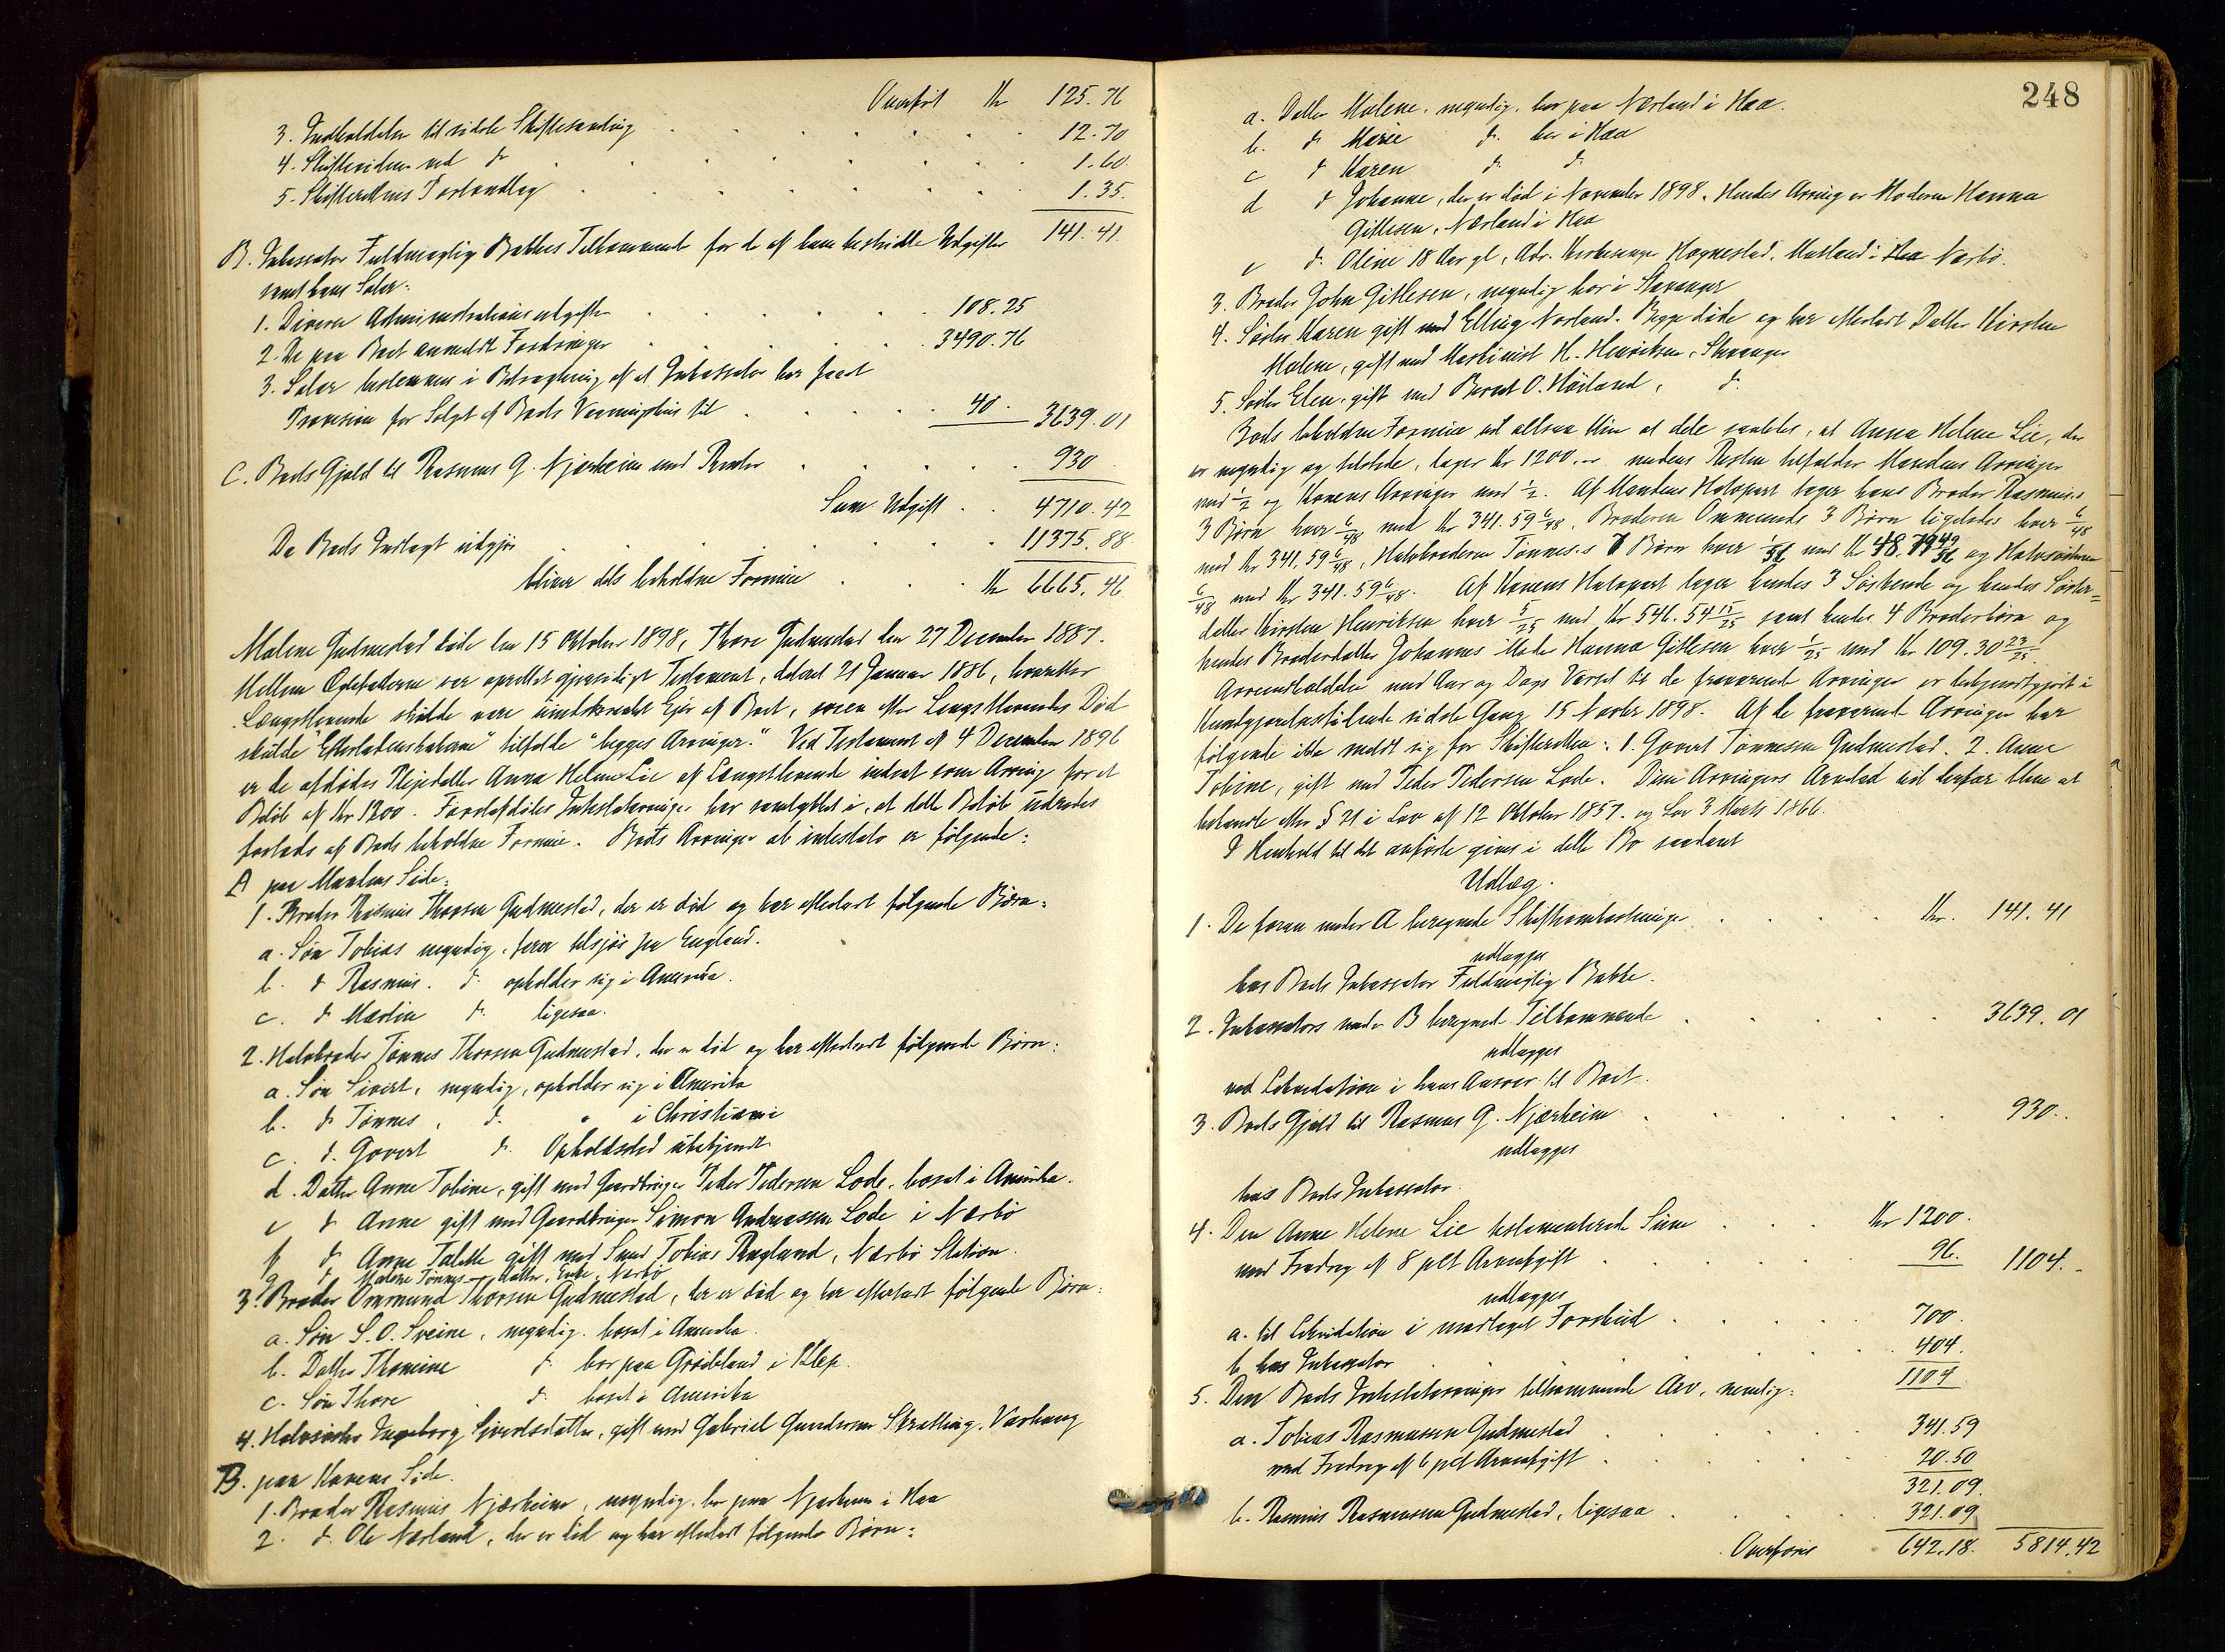 Overført Kr 125.76
3. Indkaldelse til sidste Skiftesamling 12.70
4. Skiftevidner ved do 1.60
5. Skifterettens Forlandtog 1.35.
141.41.
B. Inkassator Fuldmægtig Bakkes Tilkommende for de af ham bestridte Udgifter
samt hans Salær:
1. Diverse Administrationsudgifter 108.25
2. De paa Boet anmeldte Fordringer 3490.76
3. Salær bestemmes i Betragtning af at Inkassator har faaet
Provision for Salget af Boets Vaaningshus til 40. 3639.01
C. Boets Gjæld til Rasmus G. Njærheim med Renter 930
Sum Udgift 4710.42
Da Boets Indtægt udgjør 11375.88
bliver dets beholdne Formue Kr 6665.46
Malene Gudmestad døde den 15 Oktober 1898, Thore Gudmestad den 27 December 1887.
Mellem Ægtefællerne var oprettet gjensidigt Testament, dateret 21 Januar 1886, hvorefter
Længstlevende skulde være uindskrænket Eier af Boet, hvorefter Længstlevendes Død
skulde "Efterladenskaberne" tilfalde "begges Arvinger." Ved Testament af 4 December 1896
er de afdødes Plejedatter Anna Helene Lie af Længstlevende indsat som Arving for et
Beløb af Kr 1200. Førstafdødes Intestatarvinger har samtykket i, at dette Beløb udredes
forlods af Boets beholdne Formue. Boets Arvinger ab intestato er følgende:
A paa Mandens Side:
1. Broder Rasmus Thorsen Gudmestad, der er død og har efterladt følgende Børn:
a. Søn Tobias myndig, farer tilsjøs fra England.
b. do Rasmus. do opholder sig i Amerika.
c. do Martin do ligesaa.
2. Halvbroder Tønnes Thorsen Gudmestad, der er død og har efterladt følgende Børn:
a. Søn Sivert, myndig, opholder sig i Amerika
b. do Tønnes, do " i Christiania
c. do Govert do Opholdssted ubekjendt
d. Datter Anne Tobine, gift med Gaardbruger Peder Pedersen Lode, bosat i Amerika.
e do Anne gift med Gaardbruger Simon Andreassen Lode i Nærbø
f do Anne Talette gift med Smed Tobias Ragland, Nærbø Station.
g do Malene Tønnesdatter, Enke, Nærbø
3. Broder Ommund Thorsen Gudmestad, der er død og har efterladt følgende Børn:
a. Søn S. O. Sveine, myndig, bosat i Amerika.
b. Datter Thomine do bor paa Grødeland i Klep.
c. Søn Thore do bosat i Amerika
4. Halvsøster Ingeborg Sivertsdatter, gift med Gabriel Gundersen Skratling, Varhaug
B. paa Konens Side.
1. Broder Rasmus Njærheim, myndig, bor paa Njærheim i Haa
2. do Ole Nærland, der er død og har efterladt følgende Børn:
248
a. Datter Malene, myndig, bor paa Nærland i Haa.
b. do Marie do bor i Haa
c do Karen do do
d do Johanne, der er død i November 1898. Hendes Arving er Moderen Hanna
Gitlesen, Nærland i Haa
e do Oline 18 Aar gl, Adr. Kirkesanger Hognestad, Matland i Haa Nærbø.
3. Broder John Gitlesen, myndig bor i Stavanger
4. Søster Karen gift med Elling Nærland. Begge døde og har efterladt Datter Kirsten
Malene, gift med Maskinist H. Henriksen, Stavanger
5. Søster Elen, gift med Berent O. Høiland, do
Boets beholdne Formue vil altsaa blive at dele saaledes, at Anna Helene Lie, der
er myndig og tilstede, tager Kr 1200.- medens Resten tilfalder Mandens Arvinger
med 1/2 og Konens Arvinger med 1/2. Af Mandens Halvpart tager hans Broder Rasmus's
3 Børn hver 6/48 med Kr 341.59 6/48, Broderen Ommunds 3 Børn ligeledes hver 6/48
med Kr 341.59 6/48, Halvbroderen Tønnes.s 7 Børn hver 1/56 med Kr 48.79 42/56 og Halvsøsteren
6/48 med Kr 341.59 6/48. Af Konens Halvpart tager hendes 3 Søskende og hendes Søster=
datter Kirsten Henriksen hver 5/25 med Kr 546.54 15/25 samt hendes 4 Broderbørn og
hendes Broderdatter Johannes Moder Hanna Gitlesen hver 1/25 med Kr 109.30 23/25.
Arveindkaldelse med Aar og Dags Varsel til de fraværende Arvinger er bekjendtgjort i
Kundgjørelsestidende sidste Gang 15 Novbr 1898. Af de fraværende Arvinger har
følgende ikke meldt sig for Skifteretten: 1. Govert Tønnessen Gudmestad. 2. Anne
Tobine, gift med Peder Pedersen Lode. Disse Arvingers Arvelod vil derfor blive at
behandle efter § 21 i Lov af 12 Oktober 1857 og Lov 3 Marts 1866.
I Henhold til det anførte gives i dette Bo saadant
Udlæg.
1. De foran under A beregnede Skifteomkostninger Kr. 141.41
udlægges
hos Boets Inkassator Fuldmægtig Bakke.
2. Inkassators under B beregnede Tilkommende 3639.01
udlægges
ved Likvidation i hans Ansvar til Boet.
3. Boets Gjæld til Rasmus G. Njærheim 930.
udlægges
hos Boets Inkassator.
4. Den Anne Helene Lie testamenterede Sum Kr 1200.
med Fradrag af 8 pCt Arveafgift 96. 1104.-
udlægges
a. til Likvidation i modtaget Forskud 700.
b. hos Inkassator 404.
1104.
5. Den Boets Intestatarvinger tilkommende Arv, nemlig:
a. Tobias Rasmussen Gudmestad 341.59
med Fradrag af 6 pCt Arveafgift 20.50
321.09.
b. Rasmus Rasmussen Gudmestad, ligesaa 321.09
Overføres 642.18. 5814.42